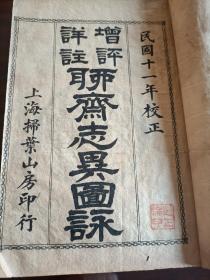 民國十一年校正
增評
詳註
聊齋志異圖詠
上海掃葉山房印行